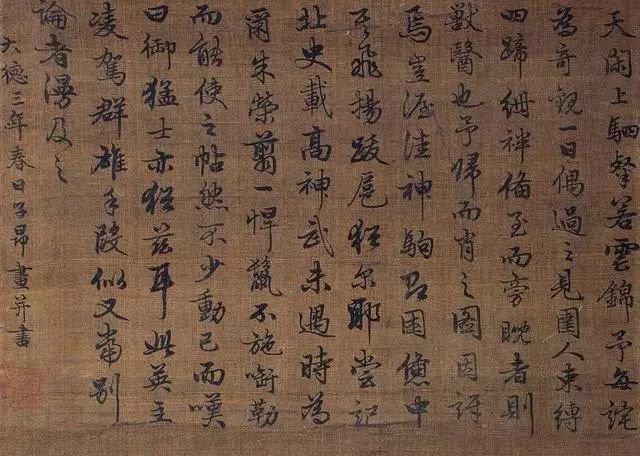 天閑上駟羣若雲錦予每詫
為奇觀一日偶過之見圉人束縛
四蹄紲袢備至而旁睨者則
獸醫也予歸而肖之圖因訝
焉豈渥洼神駒困憊中
其飛揚跋扈猶尔耶嘗記
北史載高神武未遇時為
爾朱榮翦一悍鬣不施銜勒
而能使之帖然不少動已而嘆
曰御猛士亦猶茲耳此英主
凌駕群雄手段似又當別
論者漫及之
大德三年春日子昂畫并書